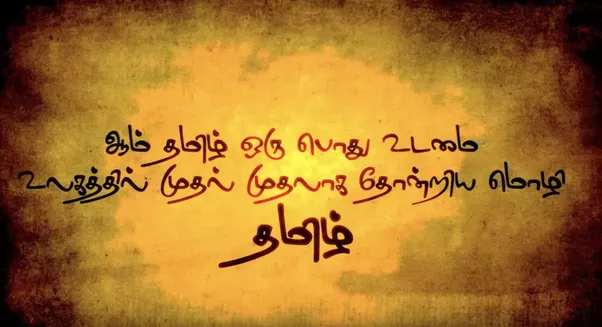 ஆம் தமிழ் ஒரு பொது உடமை
உலகத்தில் முதல் முதலாக தோன்றிய மொழி
தமிழ்